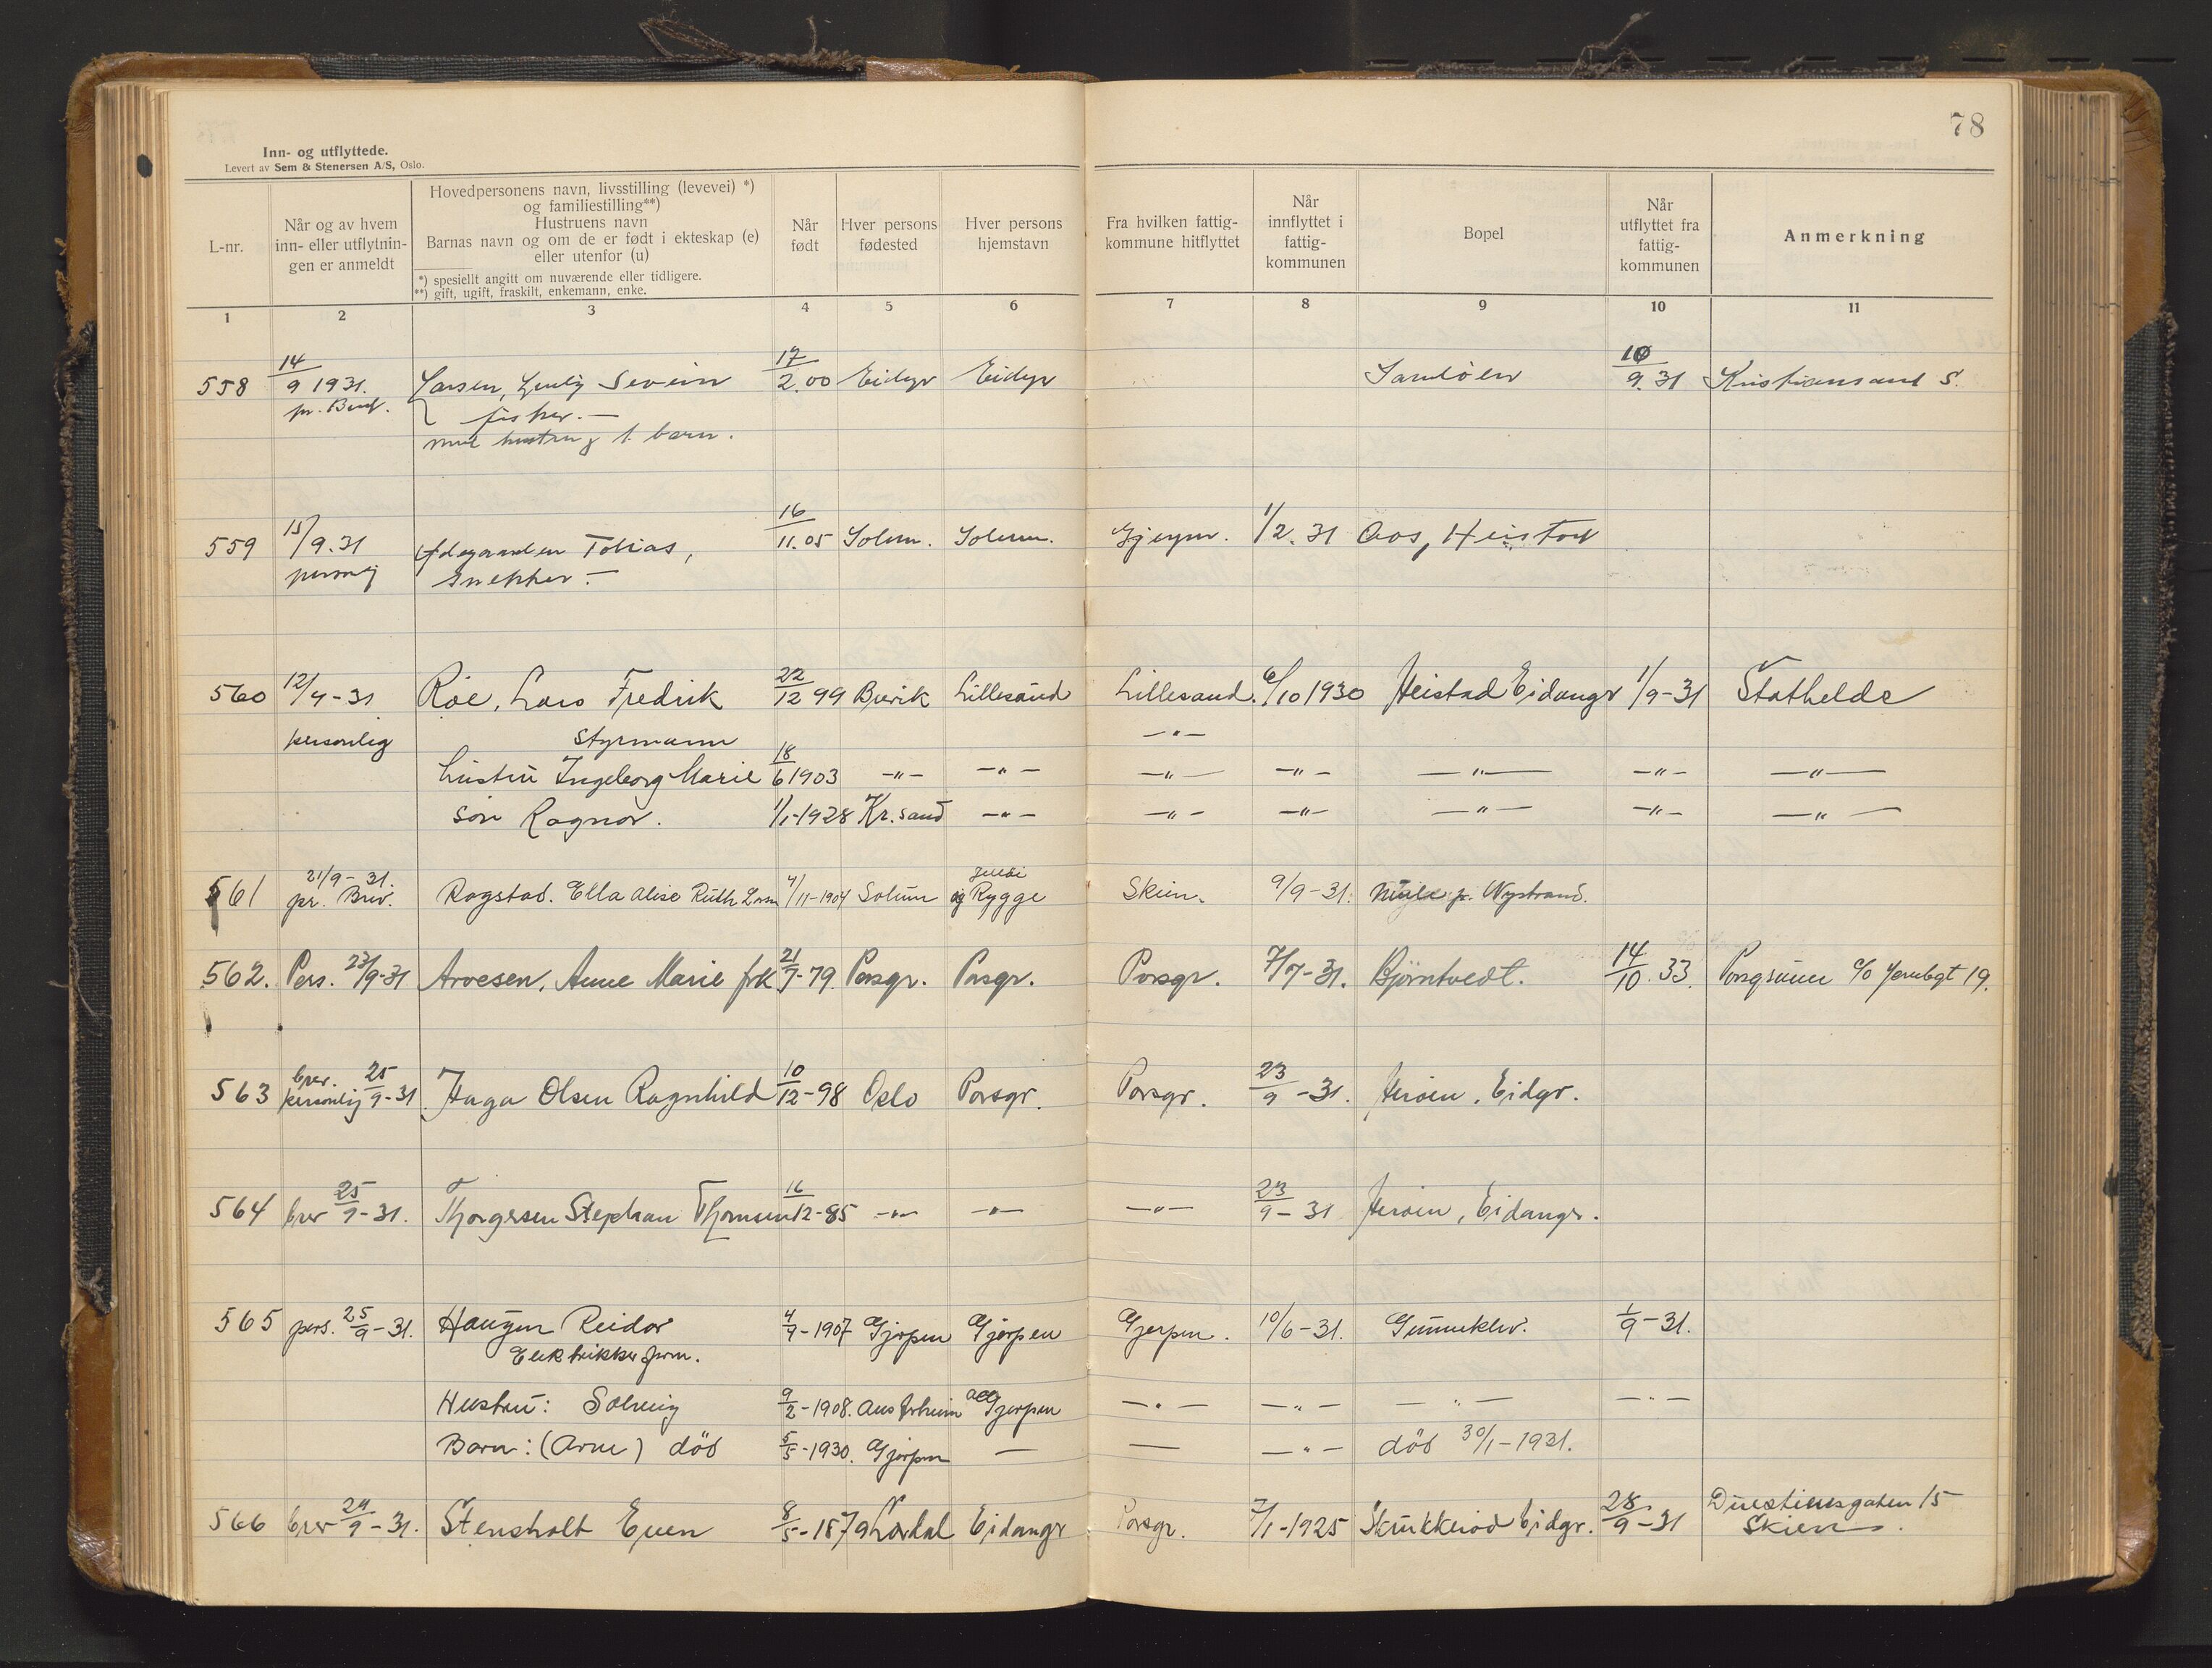 78
Inn- og utflyttede.
Levert av Sem & Stenersen A/S, Oslo.
L-nr.
Når og av hvem inn- eller utflytnin-gen er anmeldt
Hovedpersonens navn, livsstilling (levevei) *)
og familiestilling**)
Hustruens navn
Barnas navn og om de er født i ekteskap (e)
eller utenfor (u)
*) spesiellt angitt om nuværende eller tidligere.
**) gift, ugift, fraskilt, enkemann, enke.
Når født
Hver persons fødested
Hver persons hjemstavn
Fra hvilken fattig-kommune hitflyttet
Når innflyttet i fattig-kommunen
Bopel
Når utflyttet fra fattig-kommunen
Anmerkning
1 2 3 4 5 6 7 8 9 10 11
558 14/9 1931. Larsen, Severin 17/2.00 Eidgr Eidgr Sandøen 10/9.31 Kristiansand S.
pr. fisker. —
med hustru og 1 barn.
559 15/9.31 Ødegaarden Tobias, 16/11.05 Solum. Solum. Gjerpen. 1/2.31 Aas, Heistad
personlig snekker. —
560 12/9-31 Roe, Lars Fredrik 22/12 99 Brevik Lillesand Lillesand. 6/10 1930 Heistad Eidangr 1/9-31 Stathelde
personlig Styrmann —"—
hustru Ingeborg Marie 18/6 1903 —"— —"— —"— —"— —"— —"— —"—
søn Ragnar. 1/1-1928 Kr.sand —"— —"— —"— —"— —"— —"—
561 21/9-31. pr. Brev. Rogstad. Ella Alise Ruth 4/11-1904 Solum og Rygge Skien. 9/9-31. p. Nystrand.
562. Pers. 23/9-31 Arvesen, Anne Marie frk 21/7-79 Porsgr. Porsgr. Porsgr. 7/7-31. Bjørntvedt. 14/10.33. Porsgrunn c/o Jernbgt 19.
563 brev. personlig 25/9-31 Haga Olsen Ragnhild 10/12-98 Oslo Porsgr. Porsgr. 23/9-31. Herøen, Eidgr.
564 brev 25/9-31. Thorgersen Stephan Thomsen 16/12-85 —"— —"— —"— 23/9-31 Herøen, Eidangr.
565 pers. 25/9-31. Haugen Reidar 4/9-1907 Gjerpen Gjerpen Gjerpen. 10/6-31. Gunneklev. 1/9-31.
Elektrikker
Hustru: Solveig 9/2-1908. Austerheim Gjerpen —"— —"— —"— —"—
Barn: (Arne) död 5/5-1930. Gjerpen — — —"— död 30/1-1931.
566 brev 24/9-31. Stensholt Even 8/5-1879 Lardal Eidangr Porsgr. 7/1-1925 Skrukkerød Eidgr. 28/9-31 15
Skien.